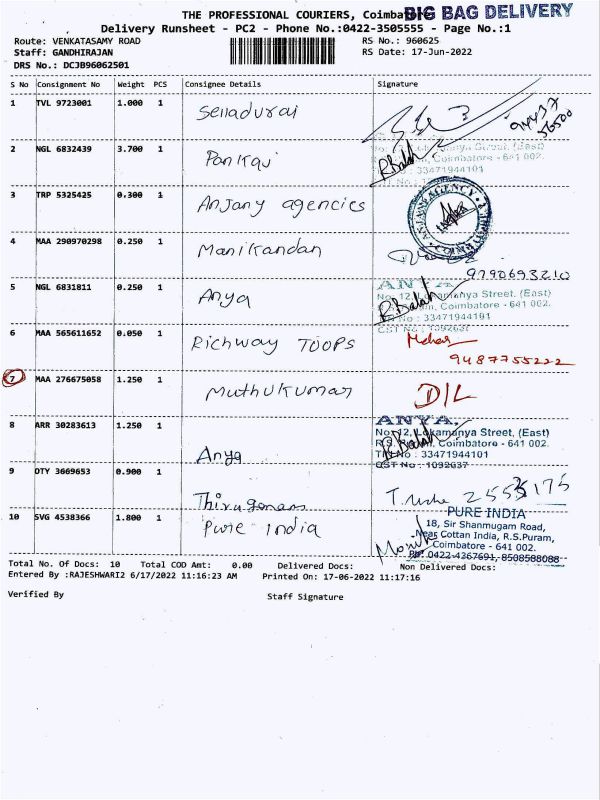 THE PROFESSIONAL COURIERS, Coimbat
BIG BAG DELIVERY
Delivery Runsheet - PC2 - Phone No.:0422-3505555 - Page No.:1
Route: VENKATASAMY ROAD
RS No.: 960625
Staff: GANDHIRAJAN
RS Date: 17-Jun-2022
DRS No.: DCJB96062501
S No Consignment No Weight PCS Consignee Details Signature
1 TVL 9723001 1.000 1 Selladurai 94437 56500
2 NGL 6832439 3.700 1 Pankaj
Coimbatore - 641 002.
: 33471944101
3 TRP 5325425 0.300 1 Anjany agencies
4 MAA 290970298 0.250 1 Manikandan
9790693210
5 NGL 6831811 0.250 1 Anya
ANYA
No. 12, Lokamanya Street, (East)
Coimbatore - 641 002.
No : 33471944101
CST No : 1092637
6 MAA 565611652 0.050 1 Richway TOOPS
9487755222
7 MAA 276675058 1.250 1 Muthukumar D/L
8 ARR 30283613 1.250 1 Anya
ANYA,
No. 12, Lokamanya Street, (East)
R.S. Coimbatore - 641 002.
TIN No : 33471944101
CST No : 1092637
9 OTY 3669653 0.900 1 Thirugonam
10 SVG 4538366 1.800 1 Pure India
PURE INDIA
18, Sir Shanmugam Road,
Near Cottan India, R.S.Puram,
Coimbatore - 641 002.
Ph: 0422-4367691, 8508588088
Total No. Of Docs: 10 Total COD Amt: 0.00 Delivered Docs: Non Delivered Docs:
Entered By :RAJESHWARI2 6/17/2022 11:16:23 AM Printed On: 17-06-2022 11:17:16
Verified By Staff Signature